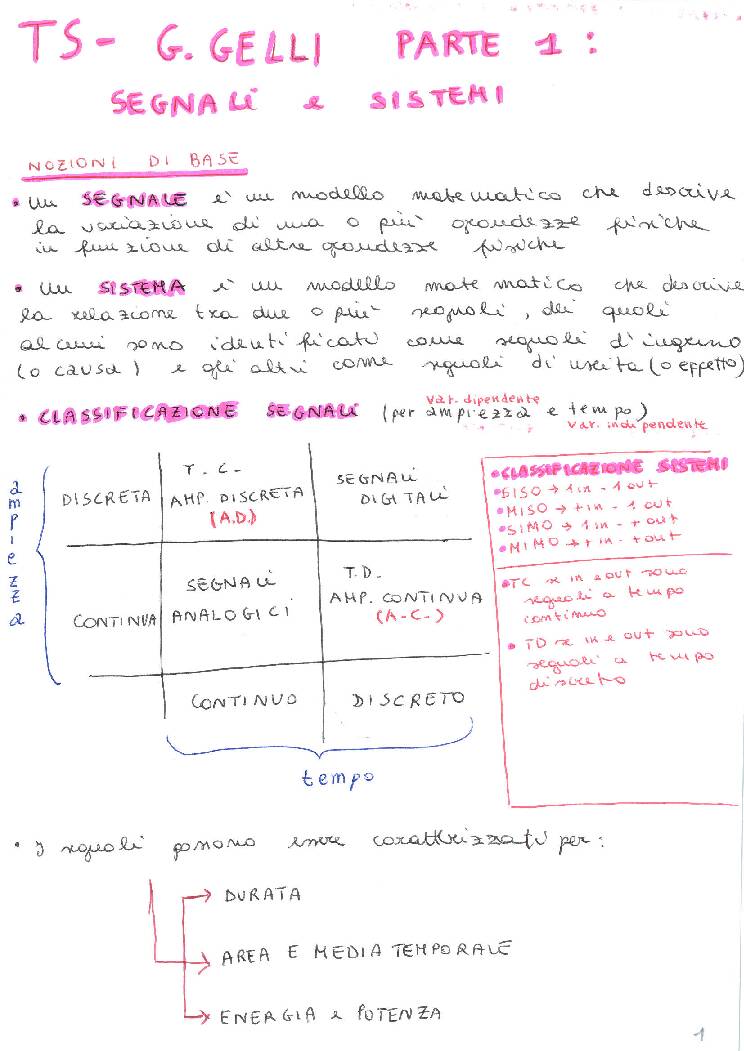 TS - G. GELLI PARTE 1:
SEGNALI e SISTEMI
NOZIONI DI BASE
• Un SEGNALE è un modello matematico che descrive
la variazione di una o più grandezze fisiche
in funzione di altre grandezze fisiche
• Un SISTEMA è un modello matematico che descrive
la relazione tra due o più segnali, dei quali
alcuni sono identificati come segnali d'ingresso
(o causa) e gli altri come segnali di uscita (o effetto)
var. dipendente
• CLASSIFICAZIONE SEGNALI (per ampiezza e tempo)
var. indipendente
ampiezza
DISCRETA
T.C.
AMP. DISCRETA
(A.D.)
SEGNALI
DIGITALI
CONTINUA
SEGNALI
ANALOGICI
T.D.
AMP. CONTINUA
(A.C.)
CONTINUO
DISCRETO
tempo
• CLASSIFICAZIONE SISTEMI
• SISO → 1 in - 1 out
• MISO → + in - 1 out
• SIMO → 1 in - + out
• MIMO → + in - + out
• TC se in e out sono
segnali a tempo
continuo
• TD se in e out sono
segnali a tempo
discreto
• I segnali possono essere caratterizzati per:
→ DURATA
→ AREA E MEDIA TEMPORALE
→ ENERGIA e POTENZA
1